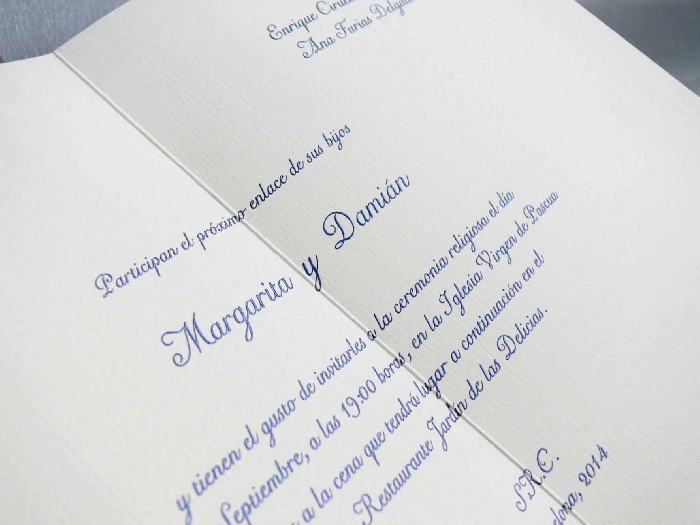 Enrique
Ana Furias
Participan el próximo enlace de sus hijos
Margarita y Damián
y tienen el gusto de invitarles a la ceremonia religiosa el día
Septiembre, a las 19:00 horas, en la Iglesia Virgen de Pascua
a la cena que tendrá lugar a continuación en el
Restaurante Jardín de las Delicias.
S.R.C.
2014